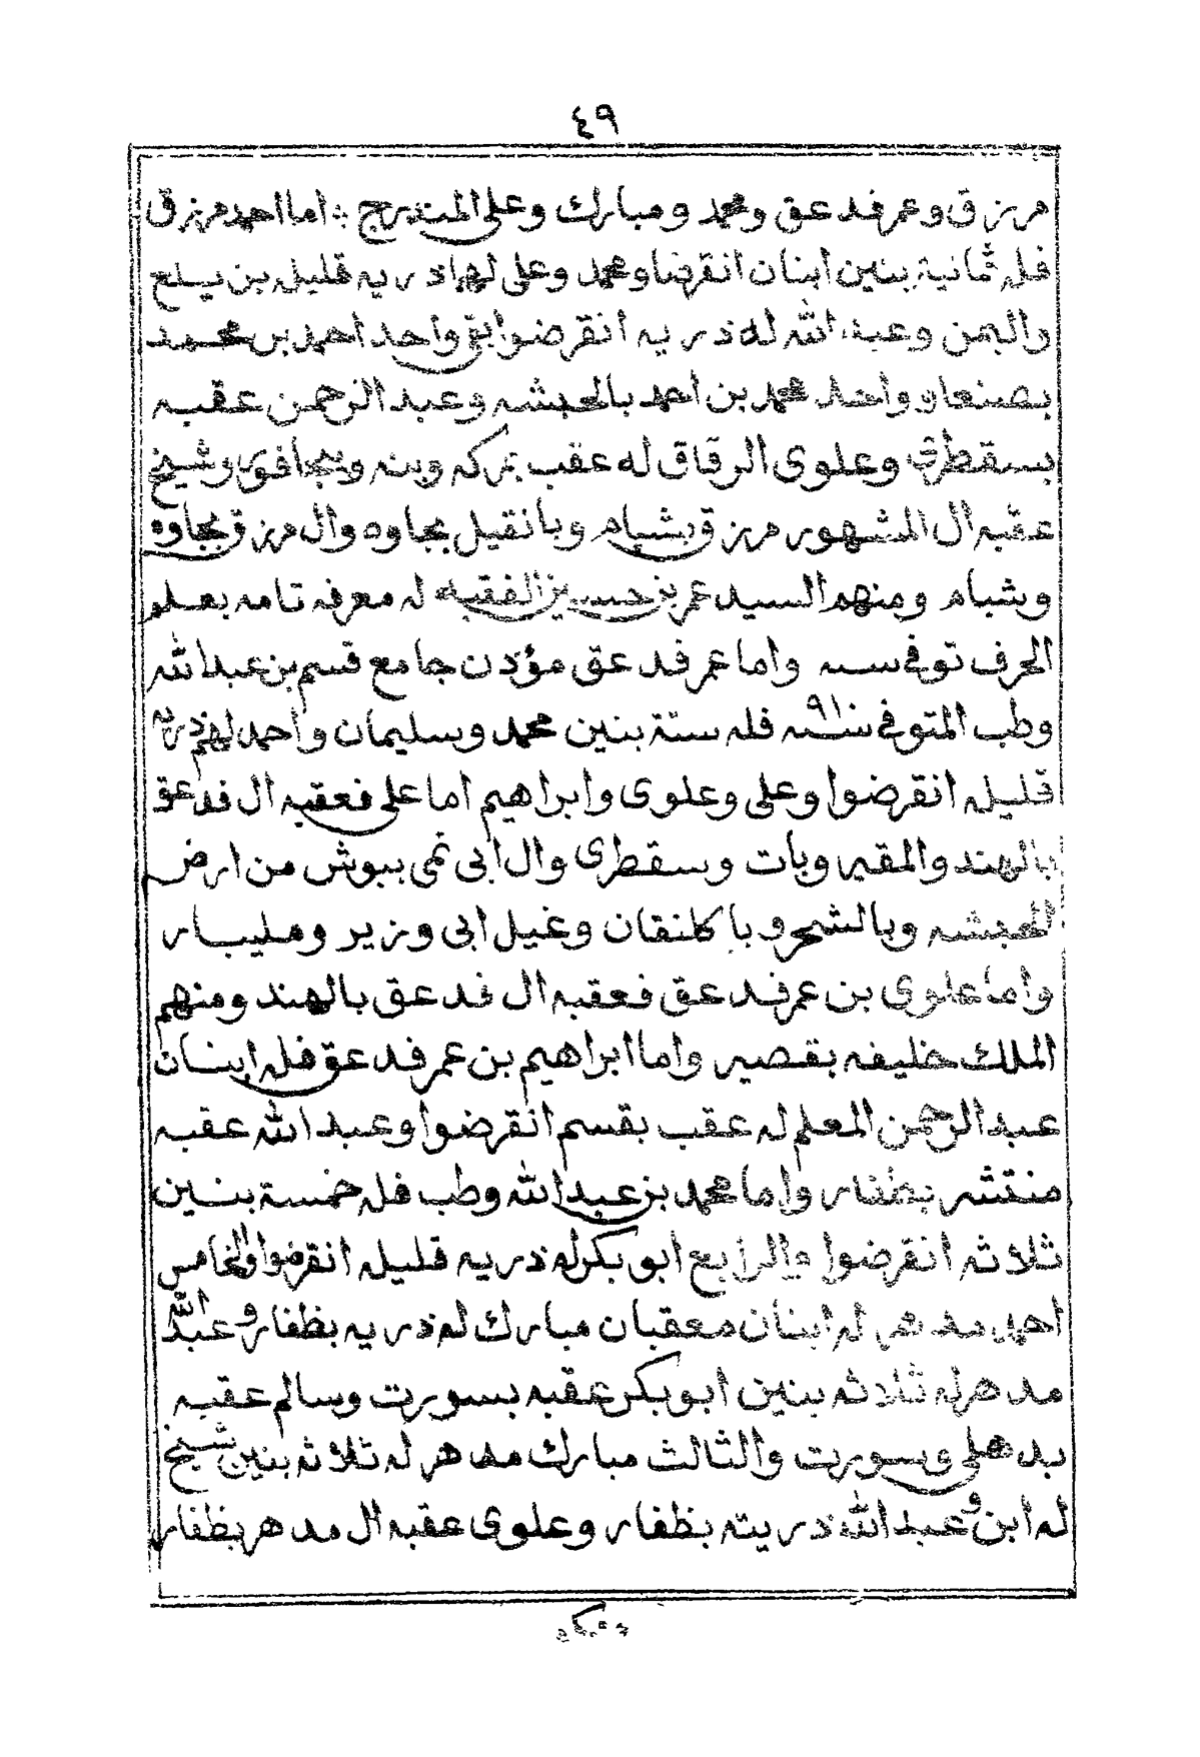 ٤٩
مرزق وعمر فدعق ومحمد ومبارك وعلى المندرج ∴ اما احمد مرزق
فله ثمانية بنين ابنان انقرضا ومحمد وعلى لهما ذريه قليله بن يسلع
واليمن وعبد الله له ذريه انقرضوا بقى واحد احمد بن محمد
بصنعا وواحد محمد بن احمد بالحبشه وعبد الرحمن عقبه
بسقطرى وعلوى الرقاق له عقب ببركه وبنه وبجافور وشيخ
عقبه ال المشهور مرزق بشبام وبانقيل بجاوه وال مرزق بجاوه
وشبام ومنهم السيد عمر بن حسين الفقيه له معرفه تامه بعلم
الحرف توفى سنه واما عمر فدعق مؤذن جامع قسم بن عبد الله
وطب المتوفى سنه ٩١٠ فله ستة بنين محمد وسليمان واحمد لهم ذريه
قليله انقرضوا وعلى وعلوى وابراهيم اما على فعقبه ال فدعق
بالهند والمقير وبات وسقطرى وال ابى نمى ببوش من ارض
الحبشه وبالشحر وبا كلنقان وغيل ابى وزير ومليبار
واما علوى بن عمر فدعق فعقبه ال فدعق بالهند ومنهم
الملك خليفه بقصير واما ابراهيم بن عمر فدعق فله ابنان
عبد الرحمن المعلم له عقب بقسم انقرضوا وعبد الله عقبه
منتشر بظفار واما محمد بن عبد الله وطب فله خمسة بنين
ثلاثه انقرضوا والرابع ابوبكر له ذريه قليله انقرضوا والخامس
احمد مدهر له ابنان معقبان مبارك له ذريه بظفار وعبد الله
مدهر له ثلاثه بنين ابوبكر عقبه بسورت وسالم عقبه
بدهلى وسورت والثالث مبارك مدهر له ثلاثه بنين شيخ
له ابن وعبد الله ذريته بظفار وعلوى عقبه ال مدهر بظفار